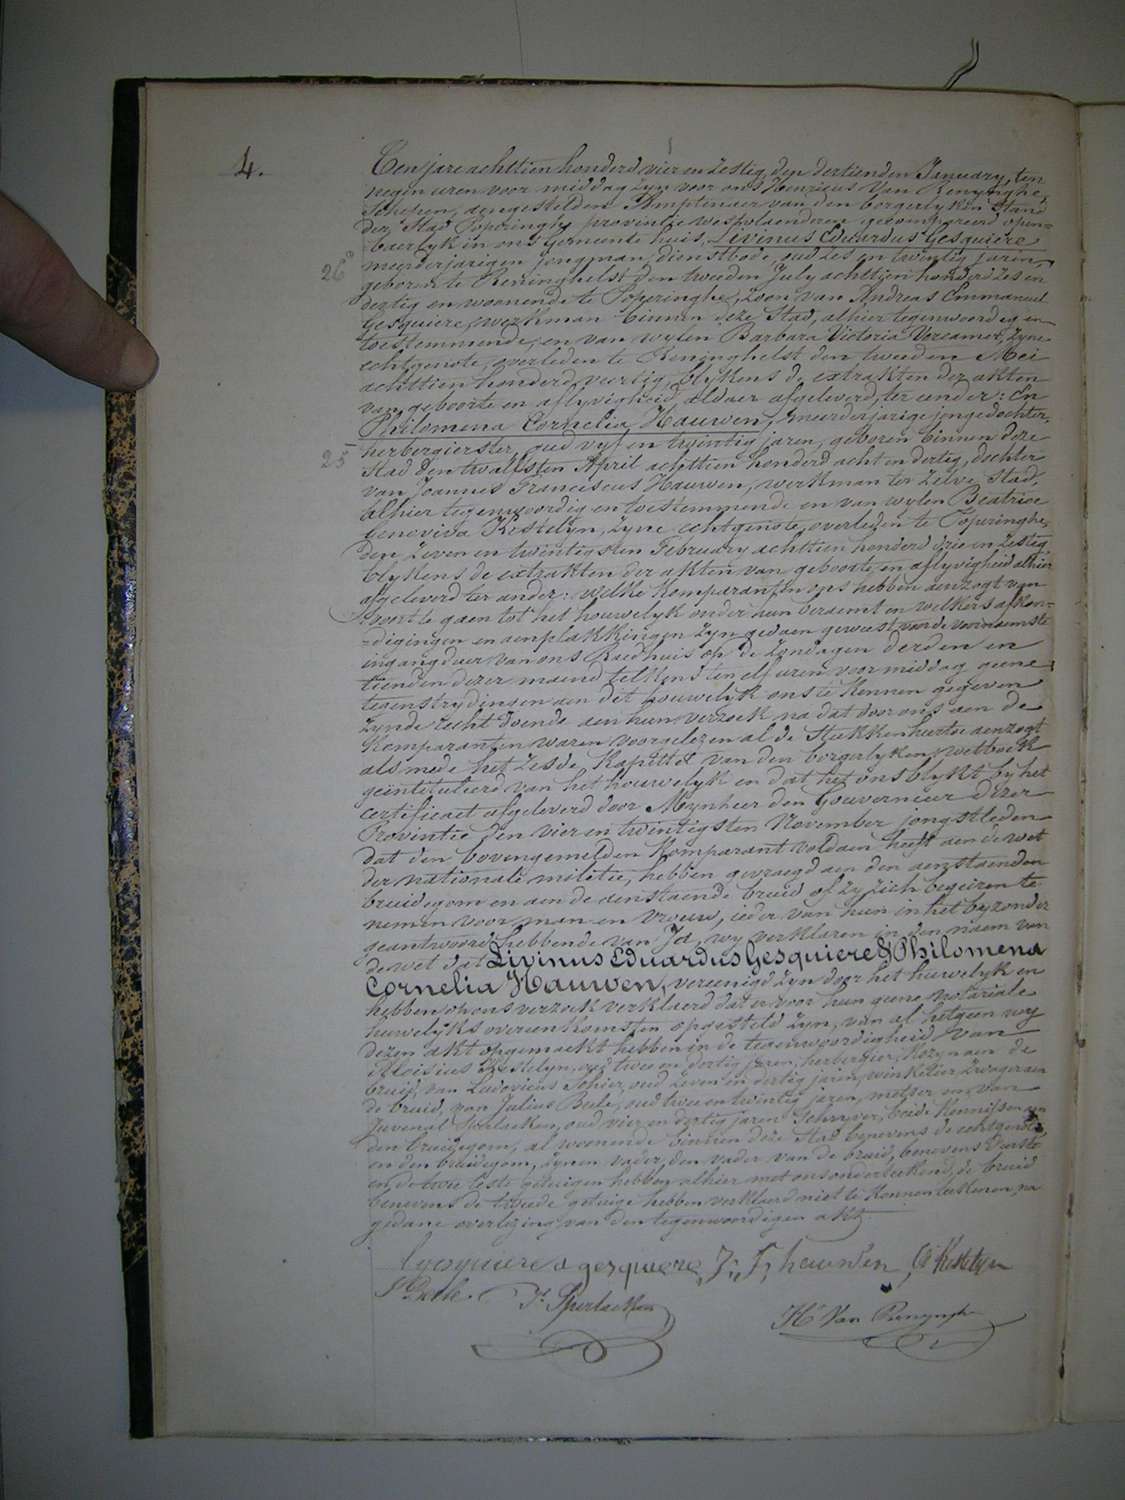 4.
Ten jare achttien honderd vier en zestig, den dertienden January, ten
negen uren voor middag zyn voor ons Henricus Van Renynghe,
Schepen, aengestelden Amptenaer van den borgerlyken Stand
der Stad Poperinghe provintie westvlaenderen gecompareerd open-
baerlyk in ons Gemeente huis, Livinus Eduardus Gesquiere
26
meerderjarigen jongman, dienstbode, oud zes en twintig jaren,
geboren te Reninghelst den tweeden July achttien honderd zes en
dertig en woonende te Poperinghe, zoon van Andreas Emmanuel
Gesquiere, werkman binnen deze Stad, alhier tegenwoordig en
toestemmende, en van wylen Barbara Victoria Vercamer, zyne
echtgenote, overleden te Reninghelst den tweeden Mei
achttien honderd veertig, blykens de extrakten der akten
van geboorte en aflyvigheid, aldaer afgeleverd, ter eender: En
Philomena Cornelia Hauwen, meerderjarige jongedochter,
herbergierster, oud vyf en twintig jaren, geboren binnen deze
25
Stad den twalfsten April achttien honderd acht en dertig, dochter
van Joannes Franciscus Hauwen, werkman ter zelve Stad,
alhier tegenwoordig en toestemmende en van wylen Beatrice
Genoviva Kestelyn, zyne echtgenote, overleden te Poperinghe,
den zeven en twintigsten February achttien honderd drie en zestig
blykens de extrakten der akten van geboorte en aflyvigheid alhier
afgeleverd ter ander: welke Komparanten ons hebben aenzogt van
voort te gaen tot het houwelyk onder hun beraemt en welkers afkon-
-digingen en aenplakkingen zyn gedaen geweest voor de voornaemste
ingangdeur van ons Raedhuis op de zondagen derden en
tienden dezer maend telkens ten elf uren voor middag geene
tegenstrydingen aen dit houwelyk ons te kennen gegeven
zynde recht doende aen hun verzoek, na dat door ons aen de
Komparanten waren voorgelezen al de Stukken hiertoe aenzogt
als mede het zesde Kapittel van den borgerlyken wetboek
geintituleerd van het houwelyk en dat het ons blykt by het
certificaet afgeleverd door Mynheer den Gouverneur dezer
Provintie den vier en twintigsten November jongstleden
dat den bovengemelden Komparant voldaen heeft aen de wet
der nationale militie, hebben gevraegd aen den aenstaenden
bruidegom en aen de aenstaende bruid of zy zich begeiren te
nemen voor man en vrouw, ieder van hun in het byzonder
geantwoord hebbende van Ja, wy verklaren in den naem van
de wet dat Livinus Eduardus Gesquiere & Philomena
Cornelia Hauwen, vereenigd zyn door het huwelyk en
hebben op ons verzoek verklaerd dat er voor hun geene notariale
huwelyks overeenkomsten opgesteld zyn, van al hetgeen wy
dezen akt opgemaekt hebben in de tegenwoordigheid van
Aloisius Kestelyn, oud twee en dertig jaren, herbergier, Kozyn aen de
bruid, van Ludovicus Sohier, oud zeven en dertig jaren, winkelier, zwager aen
de bruid, van Julius Beele, oud twee en twintig jaren, metser en van
Juvenal Sperlaeken, oud vier en dertig jaren Schryver, beide Kennissen van
den bruidegom, al woonende binnen deze Stad benevens de echtgenoten
en den bruidegom, zynen vader, den vader van de bruid, benevens d'eerste
en de twee leste getuigen hebben alhier met ons onderteekend, de bruid
benevens de tweede getuige hebben verklaerd niet te konnen teekenen, na
gedane overlezing van den tegenwoordigen akt.
Gesquiere a gesquiere, J. F. hauwen A Kestelyn
J Beele. J. Sperlaeken
H. Van Renynghe